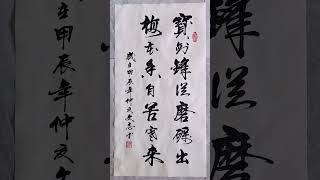 寶劍鋒從磨礪出
梅花香自苦寒來
歲在甲辰年仲夏